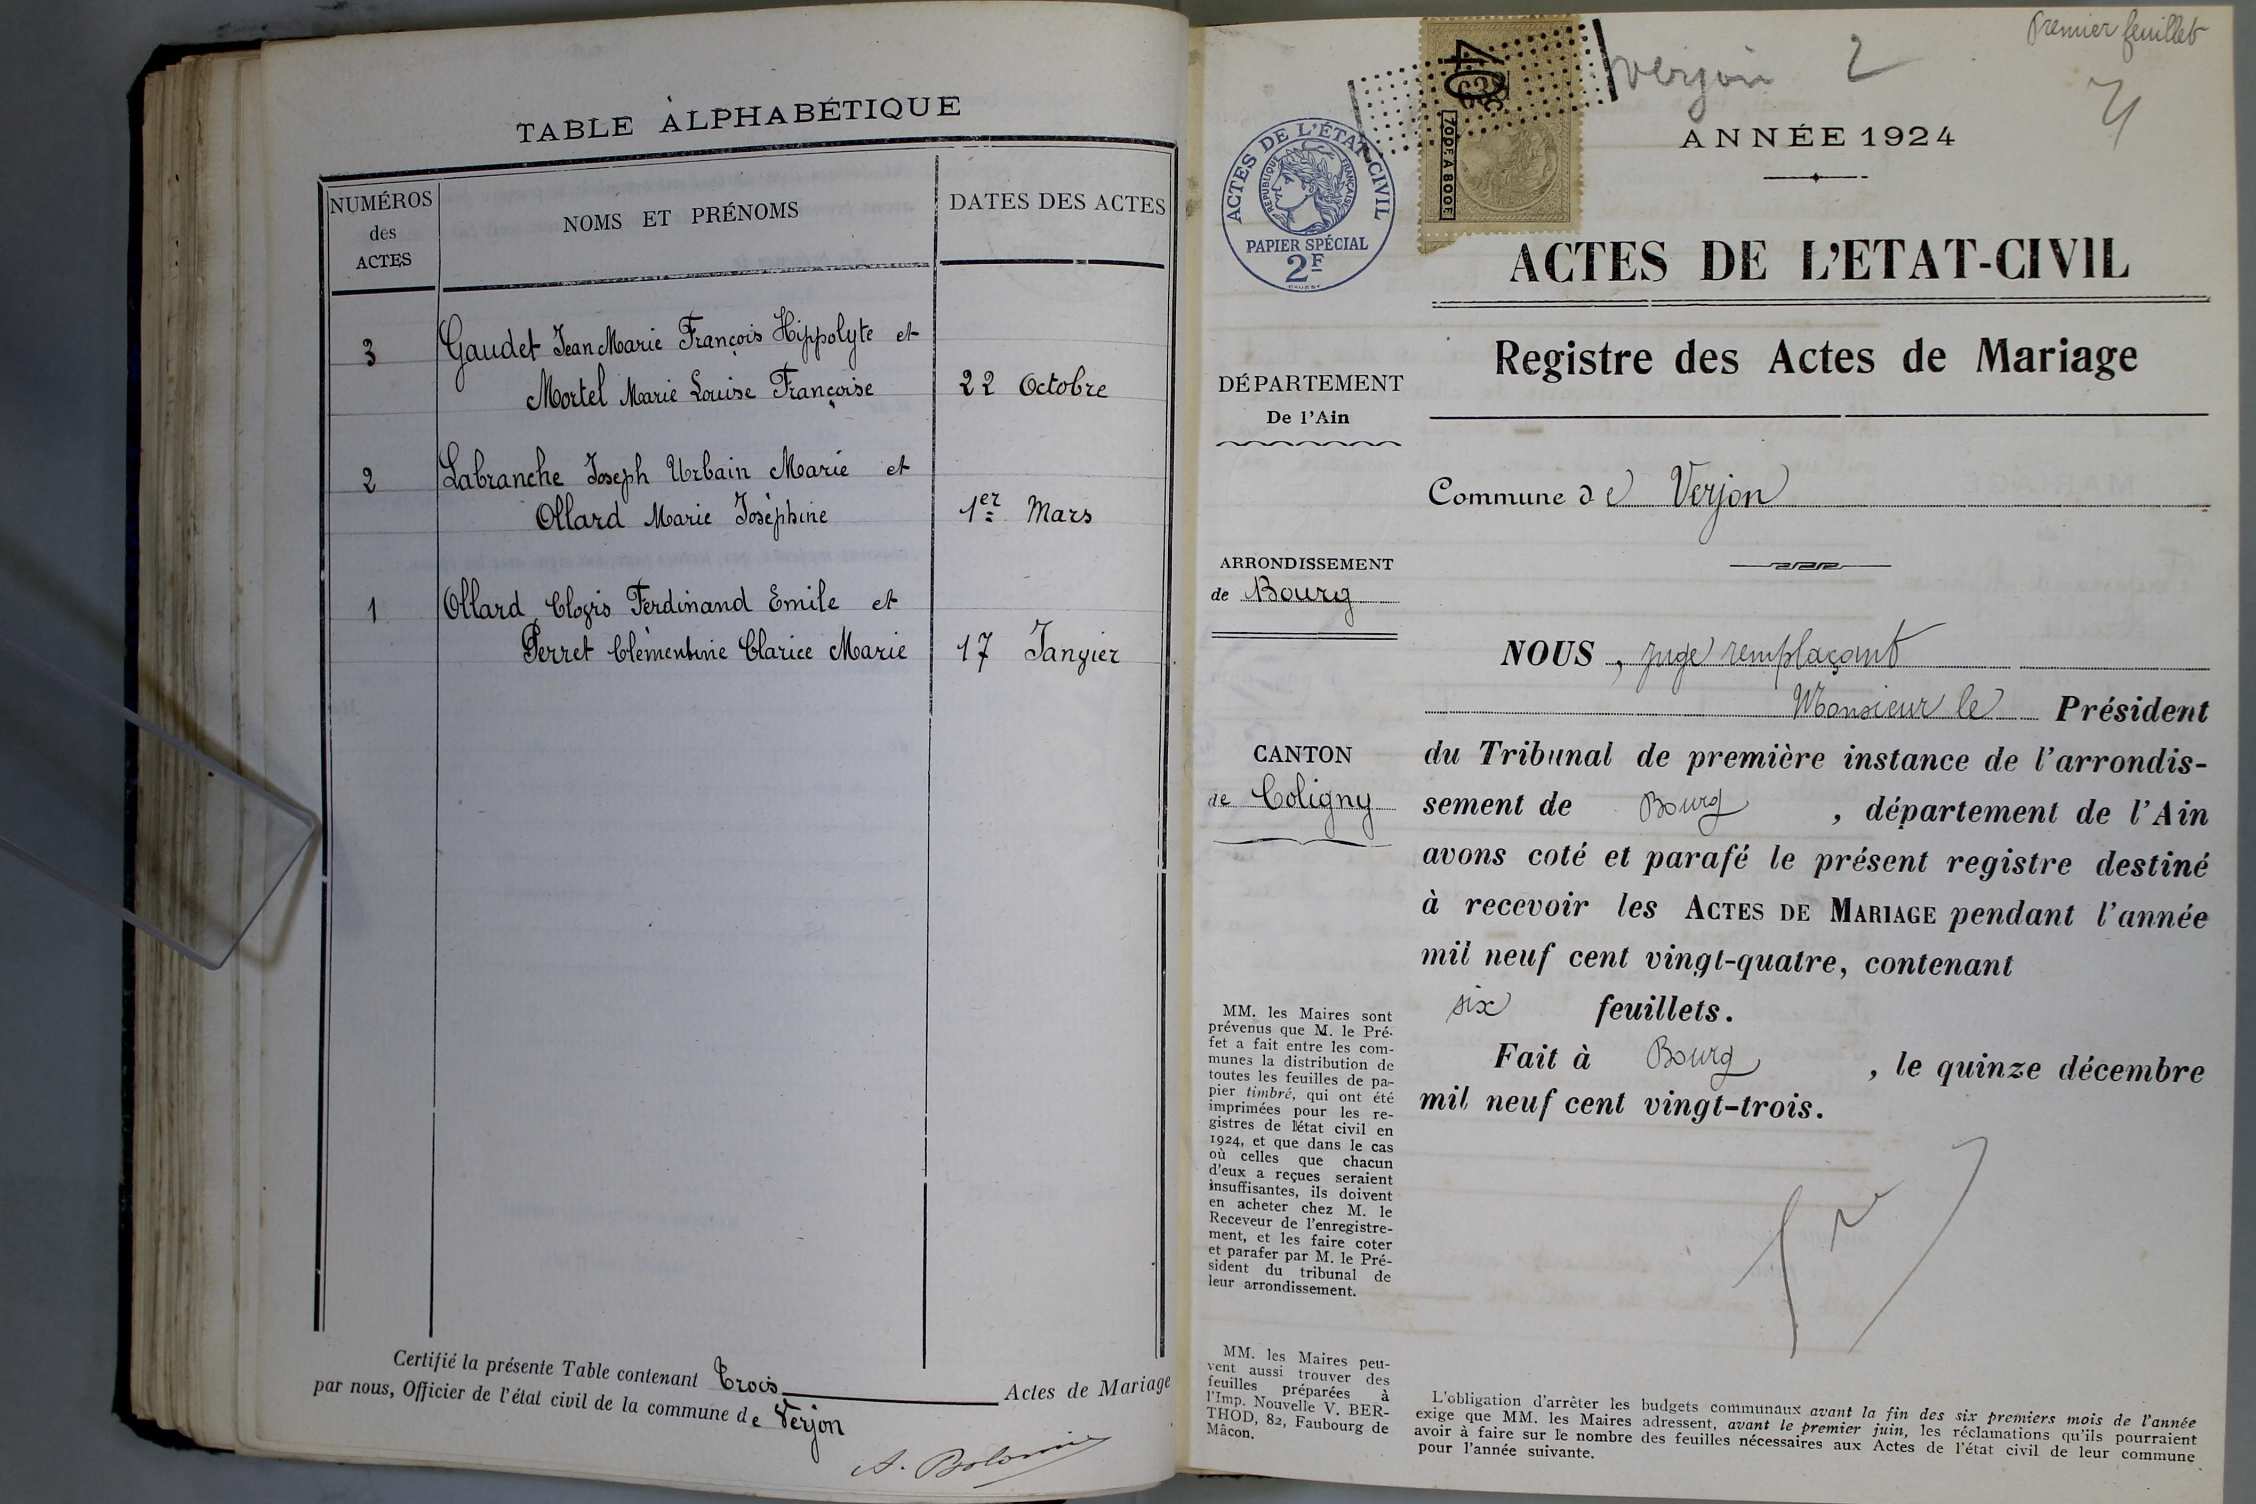 TABLE ALPHABÉTIQUE
NUMÉROS
des
ACTES
NOMS ET PRÉNOMS
DATES DES ACTES
3
Gaudet Jean Marie François Hippolyte et
Mortel Marie Louise Françoise
22 Octobre
2
Labranche Joseph Urbain Marie et
Ollard Marie Joséphine
1er Mars
1
Ollard Clovis Ferdinand Emile et
Perret Clémentine Clarice Marie
17 Janvier
Certifié la présente Table contenant Trois Actes de Mariage
par nous, Officier de l'état civil de la commune de Verjon
Premier feuillet
Verjon 2
40c
700F. A 800F.
ACTES DE L'ÉTAT-CIVIL
RÉPUBLIQUE FRANÇAISE
PAPIER SPÉCIAL
2F
ANNÉE 1924
ACTES DE L'ETAT-CIVIL
Registre des Actes de Mariage
DÉPARTEMENT
De l'Ain
Commune de Verjon
ARRONDISSEMENT
de Bourg
CANTON
de Coligny
NOUS, juge remplaçant
Monsieur le Président
du Tribunal de première instance de l'arrondis-
sement de Bourg, département de l'Ain
avons coté et parafé le présent registre destiné
à recevoir les ACTES DE MARIAGE pendant l'année
mil neuf cent vingt-quatre, contenant
six feuillets.
Fait à Bourg, le quinze décembre
mil neuf cent vingt-trois.
MM. les Maires sont
prévenus que M. le Pré-
fet a fait entre les com-
munes la distribution de
toutes les feuilles de pa-
pier timbré, qui ont été
imprimées pour les re-
gistres de l'état civil en
1924, et que dans le cas
où celles que chacun
d'eux a reçues seraient
insuffisantes, ils doivent
en acheter chez M. le
Receveur de l'enregistre-
ment, et les faire coter
et parafer par M. le Pré-
sident du tribunal de
leur arrondissement.
MM. les Maires peu-
vent aussi trouver des
feuilles préparées à
l'Imp. Nouvelle V. BER-
THOD, 82, Faubourg de
Mâcon.
L'obligation d'arrêter les budgets communaux avant la fin des six premiers mois de l'année
exige que MM. les Maires adressent, avant le premier juin, les réclamations qu'ils pourraient
avoir à faire sur le nombre des feuilles nécessaires aux Actes de l'état civil de leur commune
pour l'année suivante.